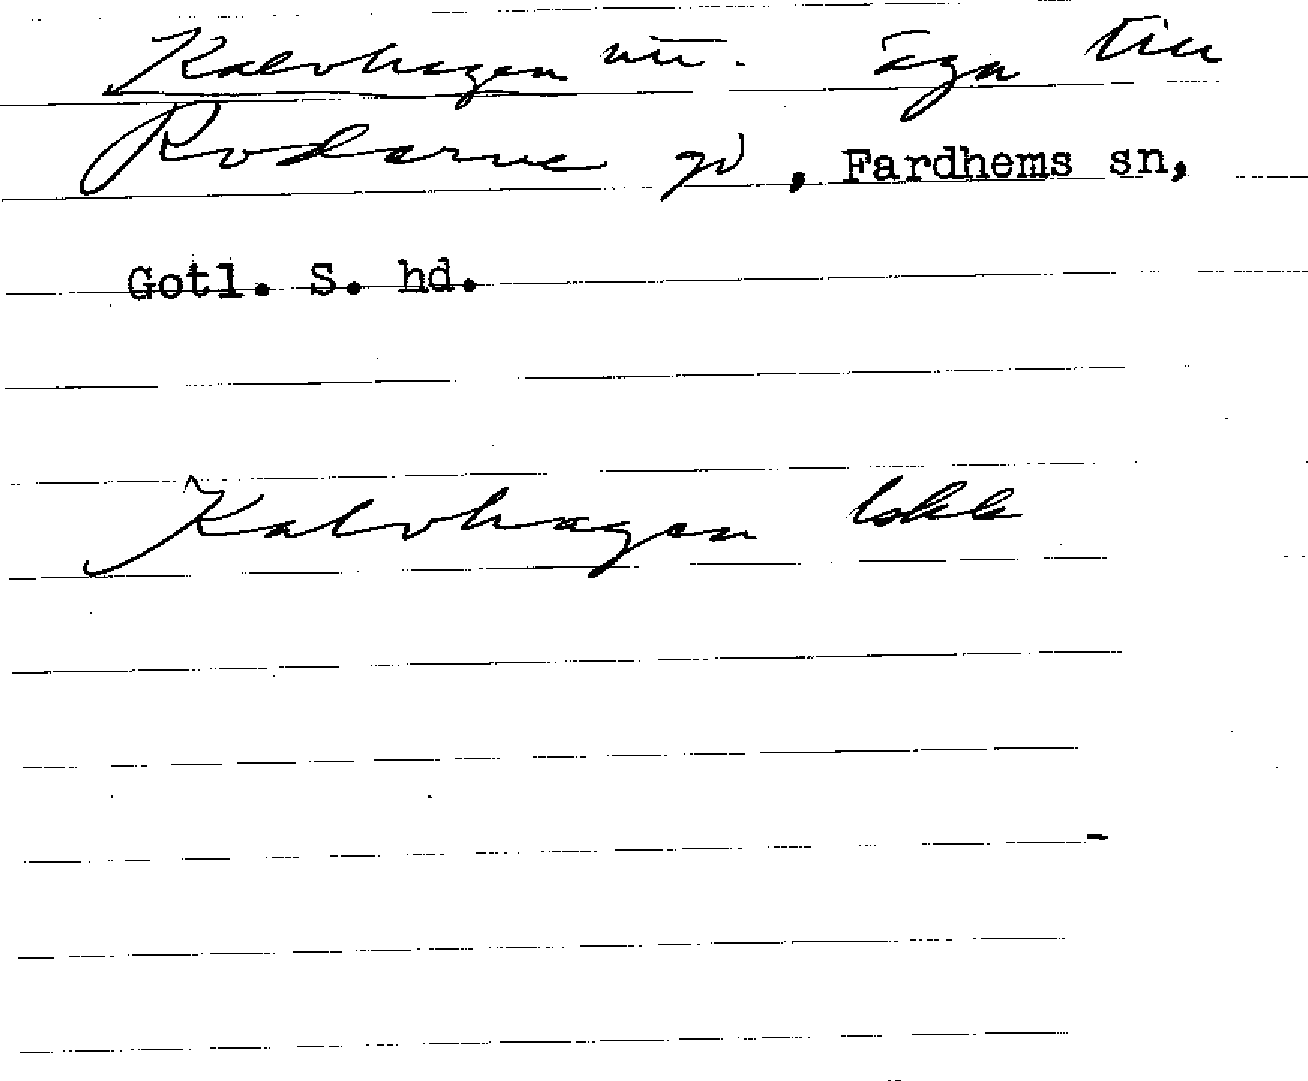 Kalvhagen äga till
Rodarve gd, Fardhems sn,
Gotl. S. hd.
Kalvhagen